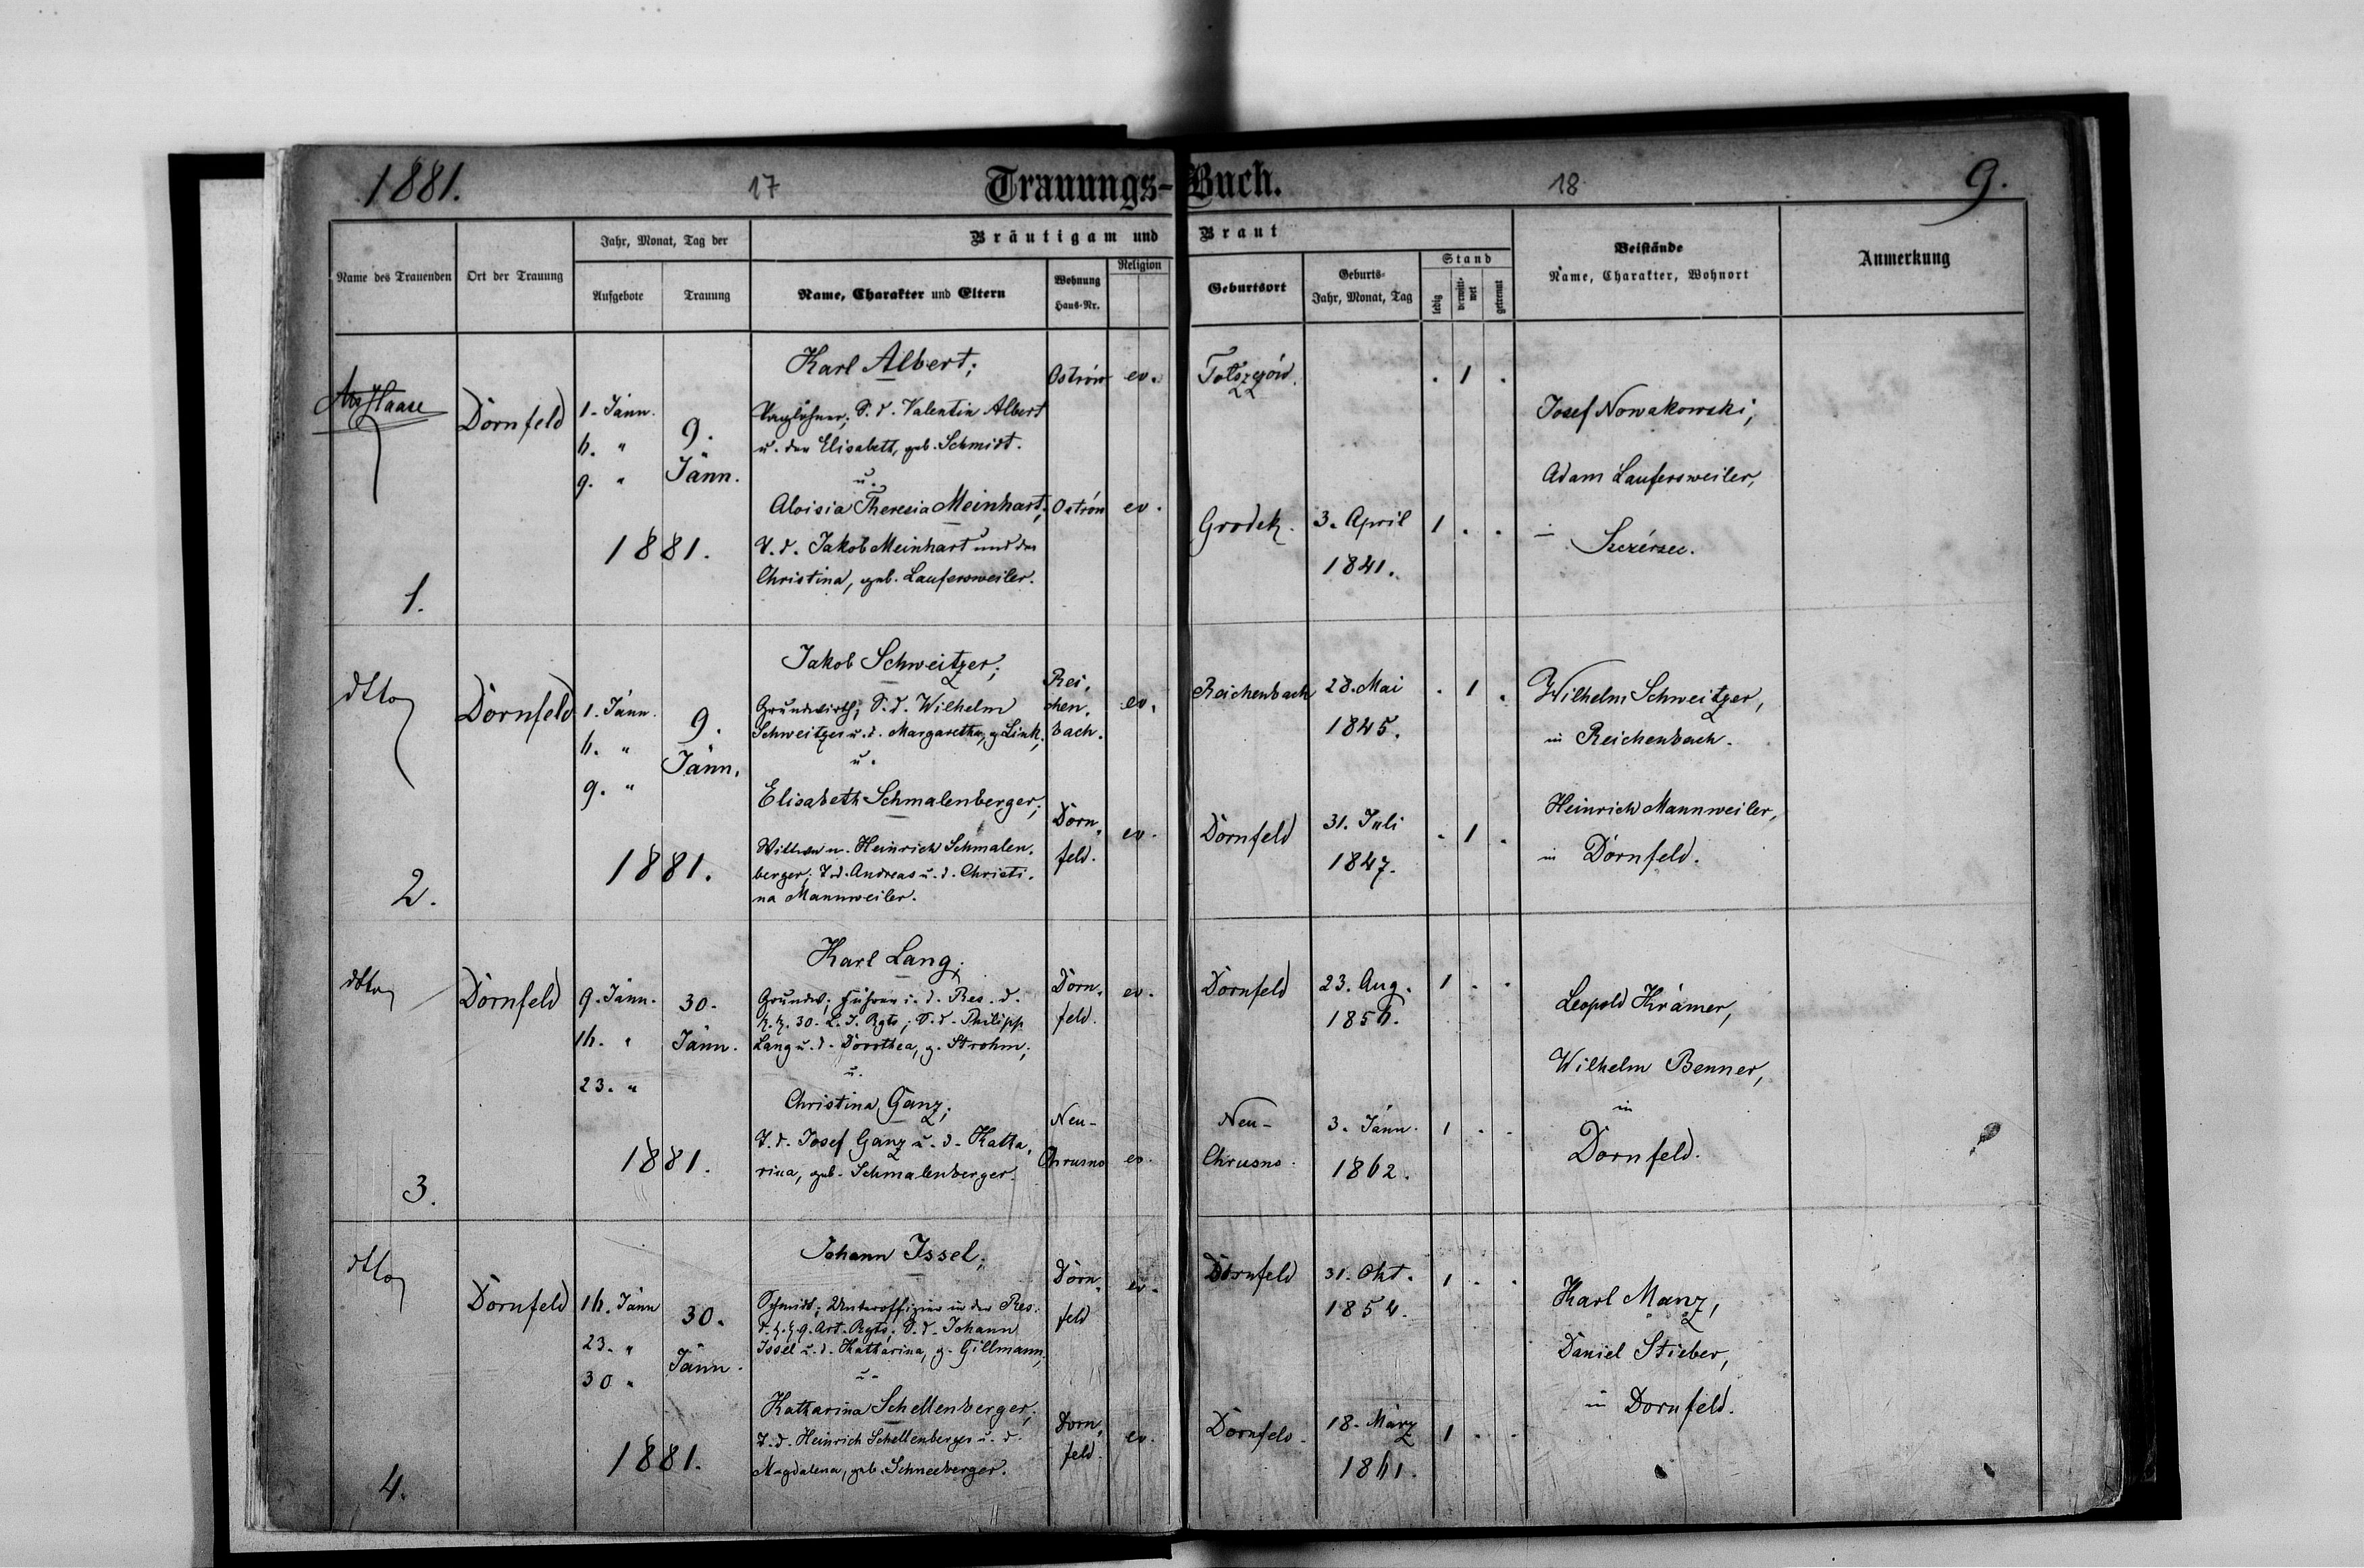 1881.
17
Trauungs-Buch.
18
9.
Name des Trauenden
Ort der Trauung
Jahr, Monat, Tag der
Aufgebote
Trauung
Bräutigam und Braut
Name, Charakter und Eltern
Wohnung
Haus-Nr.
Religion
Geburtsort
Geburts-
Jahr, Monat, Tag
Stand
ledig
verwitt-
wet
getrennt
Beistände
Name, Charakter, Wohnort
Anmerkung
Haase
Dornfeld
1. Jänn.
6. "
9. "
9.
Jänn.
1881.
1.
Karl Albert;
Taglöhner; S. d. Valentin Albert
u. der Elisabeth, geb. Schmidt.
u.
Aloisia Theresia Meinhart;
T. d. Jakob Meinhart und der
Christina, geb. Laufersweiler.
Ostrów ev.
Ostrów ev.
. 1 .
Grodek. 3. April 1 . .
1841.
Josef Nowakowski;
Adam Laufersweiler,
in
Szczérzec.
dtto
Dornfeld
1. Jänn.
6. "
9. "
9.
Jänn.
1881.
2.
Jakob Schweitzer;
Grundwirth; S. d. Wilhelm
Schweitzer u. d. Margaretha, g. Link;
u.
Elisabeth Schmalenberger;
Wittwe n. Heinrich Schmalen-
berger; T. d. Andreas u. d. Christi-
na Mannweiler.
Rei-
chen-
bach.
ev.
Dorn-
feld.
ev.
Reichenbach 28. Mai . 1 .
1845.
Dornfeld 31. Juli . 1 .
1847.
Wilhelm Schweitzer,
in Reichenbach.
Heinrich Mannweiler,
in Dornfeld.
dtto
Dornfeld
9. Jänn.
16. "
23. "
30.
Jänn.
1881.
3.
Karl Lang;
Grundw.; Führer i. d. Res. d.
k. k. 30. L. I. Rgts; S. d. Philipp
Lang u. d. Dorothea, g. Strohm;
u.
Christina Ganz;
T. d. Josef Ganz u. d. Katha-
rina, geb. Schmalenberger.
Dorn-
feld.
ev.
Neu-
Chrusno
ev.
Dornfeld 23. Aug. 1 . .
1856.
Neu- 3. Jänn. 1 . .
Chrusno. 1862.
Leopold Krämer,
Wilhelm Benner,
in
Dornfeld.
dtto
Dornfeld
16. Jänn
23. "
30 "
30.
Jänn.
1881.
4.
Johann Issel;
Schmidt; Unteroffizier in der Res.
d. k. k. 9. Art. Rgts; S. d. Johann
Issel u. d. Katharina, g. Gillmann;
u.
Katharina Schellenberger;
T. d. Heinrich Schellenberger u. d.
Magdalena, geb. Schneeberger.
Dorn-
feld
ev.
Dorn-
feld.
ev.
Dornfeld 31. Okt. 1 . .
1854.
Dornfeld. 18. März 1 . .
1861.
Karl Manz,
Daniel Stieber,
in Dornfeld.